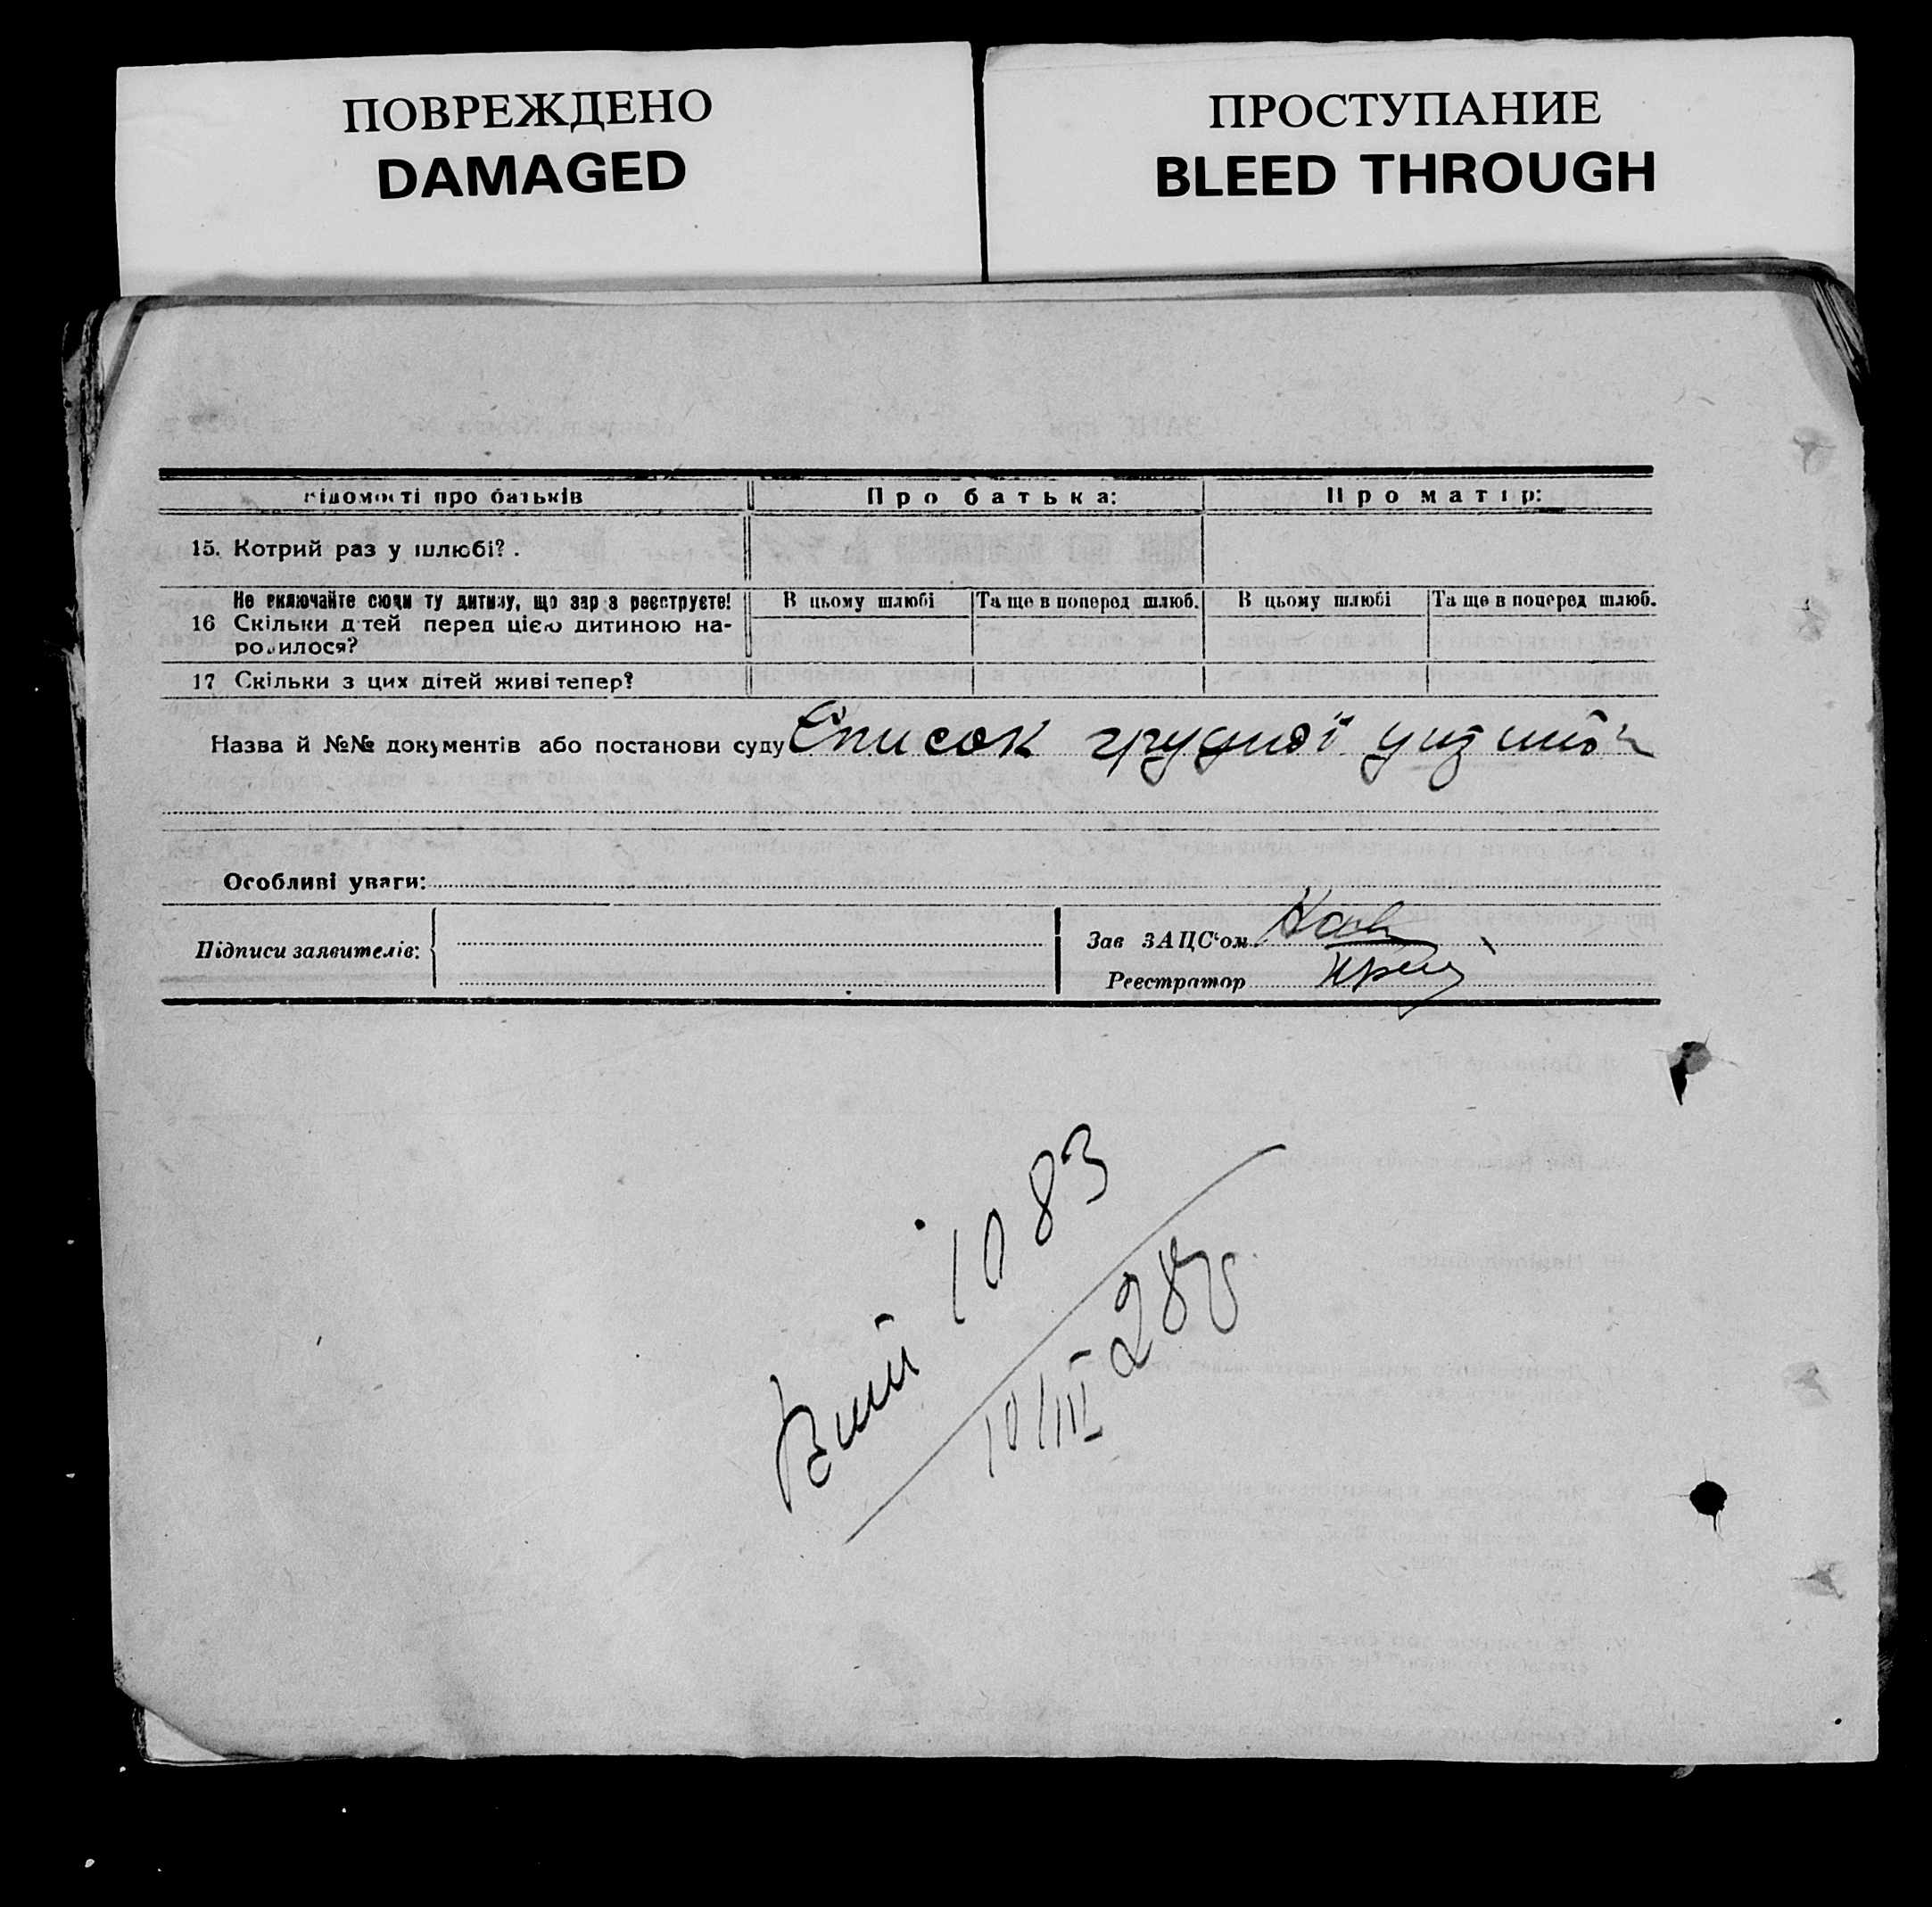 ПОВРЕЖДЕНО
DAMAGED
ПРОСТУПАНИЕ
BLEED THROUGH
відомості про батьків Про батька: Про матір:
15. Котрий раз у шлюбі? .
Не включайте сюди ту дитину, що зараз реєструєте! В цьому шлюбі Та ще в поперед шлюб. В цьому шлюбі Та ще в поперед шлюб.
16 Скільки дітей перед цією дитиною на-
родилося?
17 Скільки з цих дітей живі тепер?
Назва й №№ документів або постанови суду Список грудної
Особливі уваги:
Підписи заявителів:
Зав ЗАЦС'ом
Реєстратор
1083
10/III 28